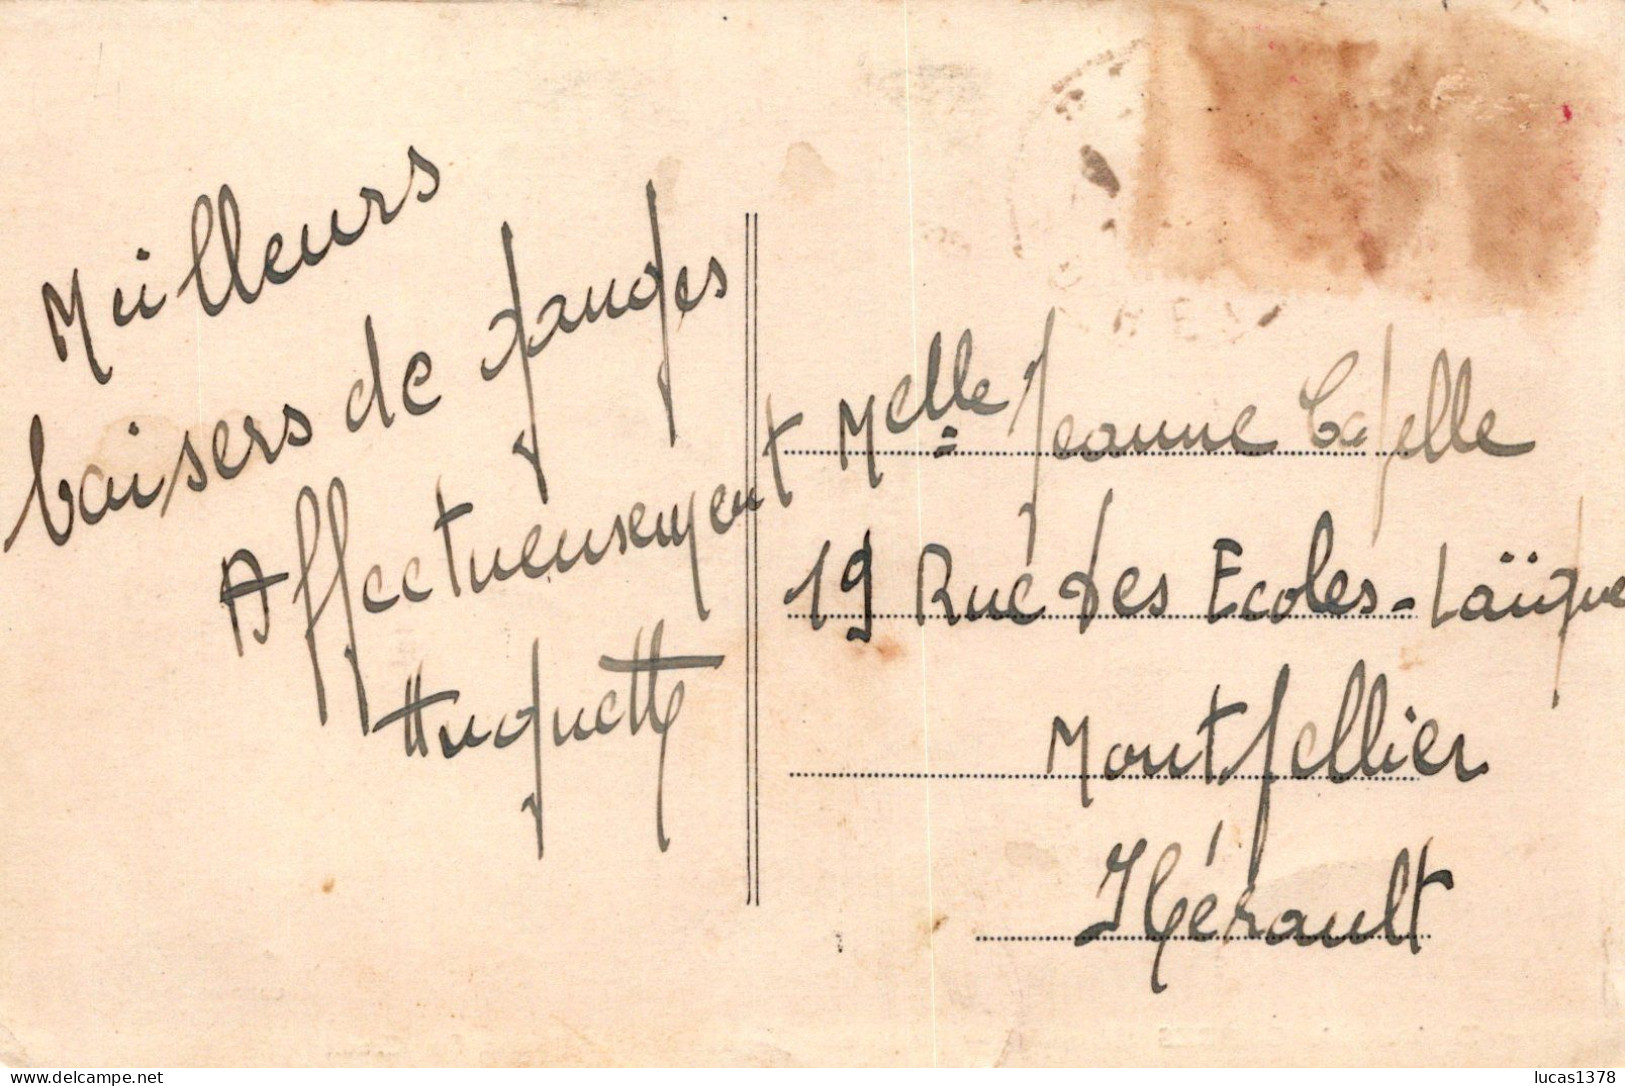 Meilleurs
baisers de Ganges
Affectueusement
Huguette
Melle Jeanne Capelle
19 Rue des Ecoles-Laïque
Montpellier
Hérault
www.delcampe.net
lucas1378